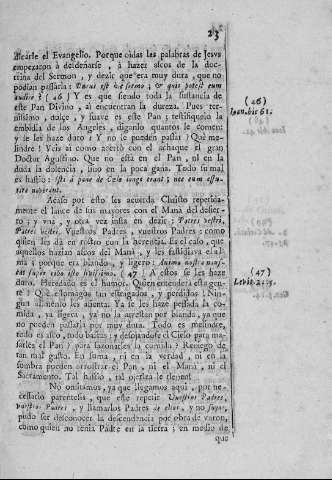 23
dicarle el Evangelio. Porque oidas las palabras de Jesus
empezaron à desdeñarse, à hazer ascos de la doc-
trina del Sermon, y dezir que era muy dura, que no
podian passarla: Durus est hic sermo; & quis potest eum
audire? (46) Y es que siendo toda la sustancia de
este Pan Divino, ai encuentran la dureza. Pues ter-
nissimo, dulce, y suave es este Pan; testifiquelo la
embidia de los Angeles, diganlo quantos le comen:
y se les haze duro à ellos? y no le pueden passar? Què me-
lindre! Veis ai como acertò con el achaque el gran
Doctor Agustino. Que no està en el Pan, ni en la
duda la dolencia, sino en la poca gana. Todo su mal
es hastio: isti à pane de Cælo longe erant; nec eum esu-
rire noverant.
Acaso por esto les acuerda Christo repetida-
mente el lance de sus mayores con el Manà del desier-
to; y una, y otra vez insta en dezir: Patres vestri,
Patres vestri. Vuestros Padres, vuestros Padres: como
quien les dà en rostro con la herencia. Es el caso, que
aquellos hazian ascos del Manà, y les fastidiava el al-
ma; porque era blando, y ligero: Anima nostra nau-
seat super cibo isto levissimo. (47) A estos se les haze
dura. Heredado es el humor. Quien entenderà esta gen-
te? Què estomagos tan estragados, y perdidos! Nin-
gun alimento les assienta? Ya se les haze pessada la co-
mida, ya ligera, ya no la arrostran por blanda, ya que
no pueden passarla por muy dura. Todo es melindre,
todo es asco, todo bascas; y desojandose el Cielo para
el Pan? para sazonarles la comida? Reniego de
tan mal gusto. En suma, ni en la verdad, ni en la
sombra pueden arrostrar el Pan, ni el Manà, ni el
Sacramento. Tal hastio, tal ojeriza le tienen!
No omitamos, ya que llegamos aqui, por ne-
cessario parentesis, que este repetir Vuestros Padres,
vuestros Padres, y llamarlos Padres de ellos, y no suyos,
pudo ser desconocer la descendencia por obra de varon,
como quien no tenia Padre en la tierra; en medio de
que
(46)
Ioan. bis 61.
(47)